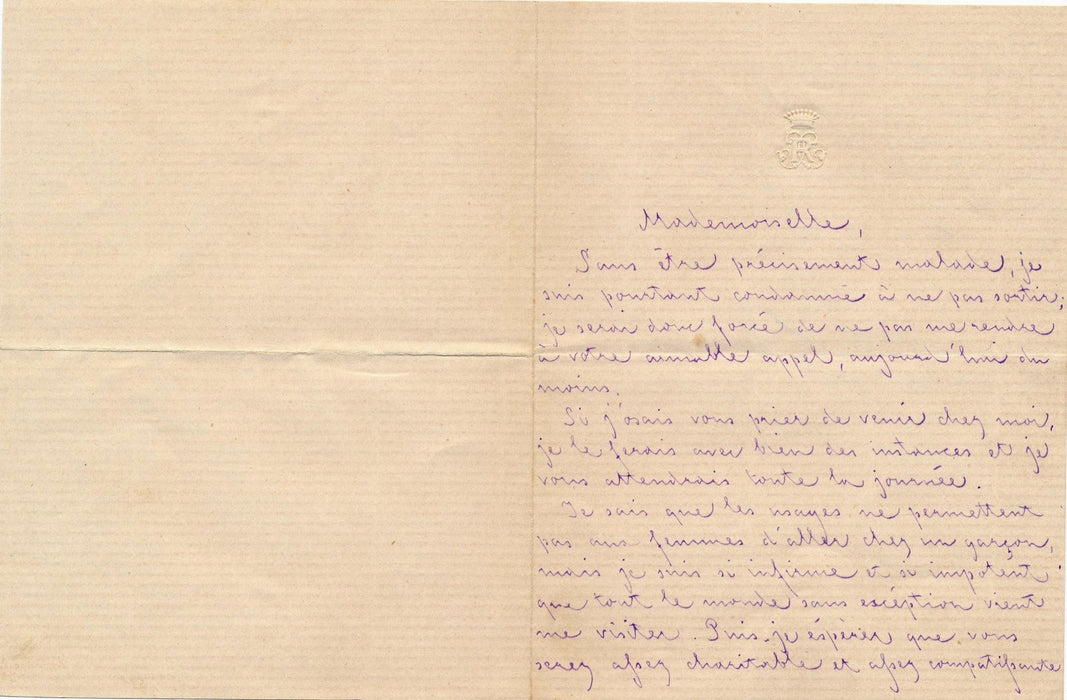 Mademoiselle,
Sans être précisément malade, je
suis pourtant condamné à ne pas sortir;
je serai donc forcé de ne pas me rendre
à votre aimable appel, aujourd'hui du
moins.
Si j'osais vous prier de venir chez moi,
je le ferais avec bien des instances et je
vous attendrais toute la journée.
Je sais que les usages ne permettent
pas aux femmes d'aller chez un garçon,
mais je suis si infirme et si impotent
que tout le monde sans excéption vient
me visiter. Puis-je éspérer que vous
serez assez charitable et assez compatissante